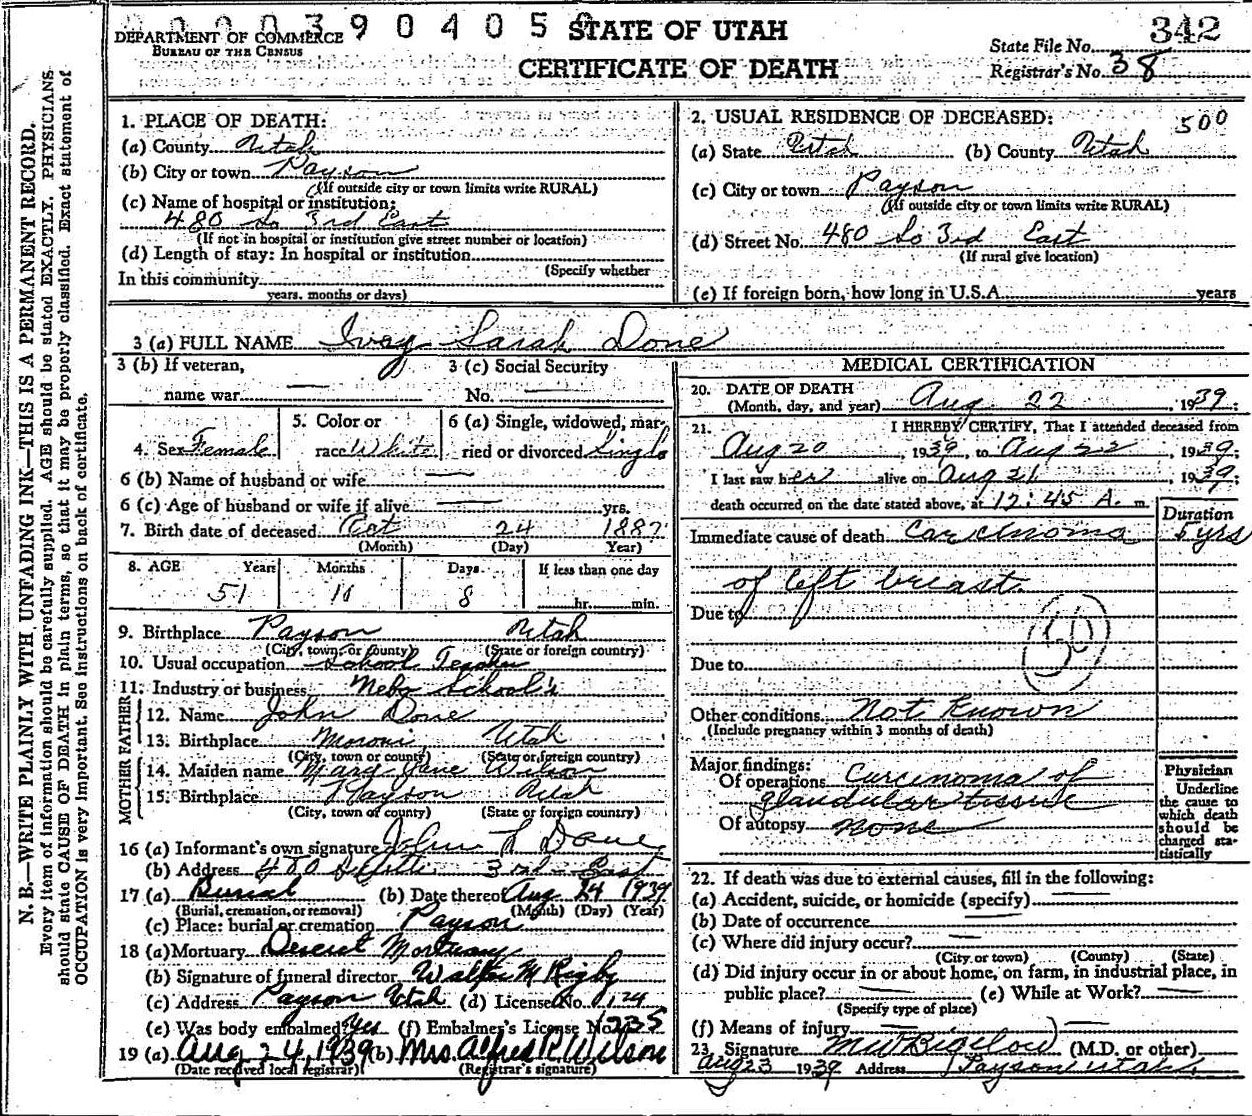 0000390405
STATE OF UTAH
342
DEPARTMENT OF COMMERCE
BUREAU OF THE CENSUS
State File No.
CERTIFICATE OF DEATH
Registrar's No. 38
N. B.—WRITE PLAINLY WITH UNFADING INK—THIS IS A PERMANENT RECORD.
Every item of information should be carefully supplied. AGE should be stated EXACTLY. PHYSICIANS
should state CAUSE OF DEATH in plain terms, so that it may be properly classified. Exact statement of
OCCUPATION is very important. See instructions on back of certificate.
1. PLACE OF DEATH:
(a) County Utah
(b) City or town Payson
(If outside city or town limits write RURAL)
(c) Name of hospital or institution:
480 So 3rd East
(If not in hospital or institution give street number or location)
(d) Length of stay: In hospital or institution
(Specify whether
In this community
years, months or days)
2. USUAL RESIDENCE OF DECEASED:
500
(a) State Utah (b) County Utah
(c) City or town Payson
(If outside city or town limits write RURAL)
(d) Street No. 480 So 3rd East
(If rural give location)
(e) If foreign born, how long in U.S.A. years
3 (a) FULL NAME Ivay Sarah Done
3 (b) If veteran, 3 (c) Social Security
name war — No. —
4. Sex Female 5. Color or race White 6 (a) Single, widowed, married or divorced Single
6 (b) Name of husband or wife —
6 (c) Age of husband or wife if alive — yrs.
7. Birth date of deceased Oct 24 1887
(Month) (Day) Year)
8. AGE Years Months Days If less than one day
51 8 hr. min.
9. Birthplace Payson Utah
(City, town, or county) (State or foreign country)
10. Usual occupation School Teacher
11. Industry or business Nebo School's
FATHER
12. Name John Done
13. Birthplace Moroni Utah
(City, town or county) (State or foreign country)
MOTHER
14. Maiden name Mary Jane Wilson
15. Birthplace Payson Utah
(City, town or county) (State or foreign country)
16 (a) Informant's own signature John L Done
(b) Address 480 South 3rd East
17 (a) Burial (b) Date thereof Aug 24 1939
(Burial, cremation, or removal) (Month) (Day) (Year)
(c) Place: burial or cremation Payson
18 (a) Mortuary Deseret Mortuary
(b) Signature of funeral director Walter M Rigby
(c) Address Payson Utah (d) License No. 124
(e) Was body embalmed? Yes (f) Embalmer's License No. 235
19 (a) Aug 24, 1939 (b) Mrs. Alfred R. Wilson
(Date received local registrar) (Registrar's signature)
MEDICAL CERTIFICATION
20. DATE OF DEATH
(Month, day, and year) Aug 22, 1939;
21. I HEREBY CERTIFY, That I attended deceased from
Aug 20, 1939, to Aug 22, 1939;
I last saw her alive on Aug 21, 1939;
death occurred on the date stated above, at 12:45 A. m.
Duration
Immediate cause of death Carcinoma 5 yrs
of left breast.
Due to
50
Due to
Other conditions Not Known
(Include pregnancy within 3 months of death)
Major findings:
Of operations Carcinoma of
glandular tissue
Of autopsy none
Physician
Underline
the cause to
which death
should be
charged sta-
tistically
22. If death was due to external causes, fill in the following:
(a) Accident, suicide, or homicide (specify) —
(b) Date of occurrence —
(c) Where did injury occur? —
(City or town) (County) (State)
(d) Did injury occur in or about home, on farm, in industrial place, in
public place? — (e) While at Work? —
(Specify type of place)
(f) Means of injury —
23. Signature M W Bigelow (M.D. or other)
Aug 23 1939 Address Payson Utah